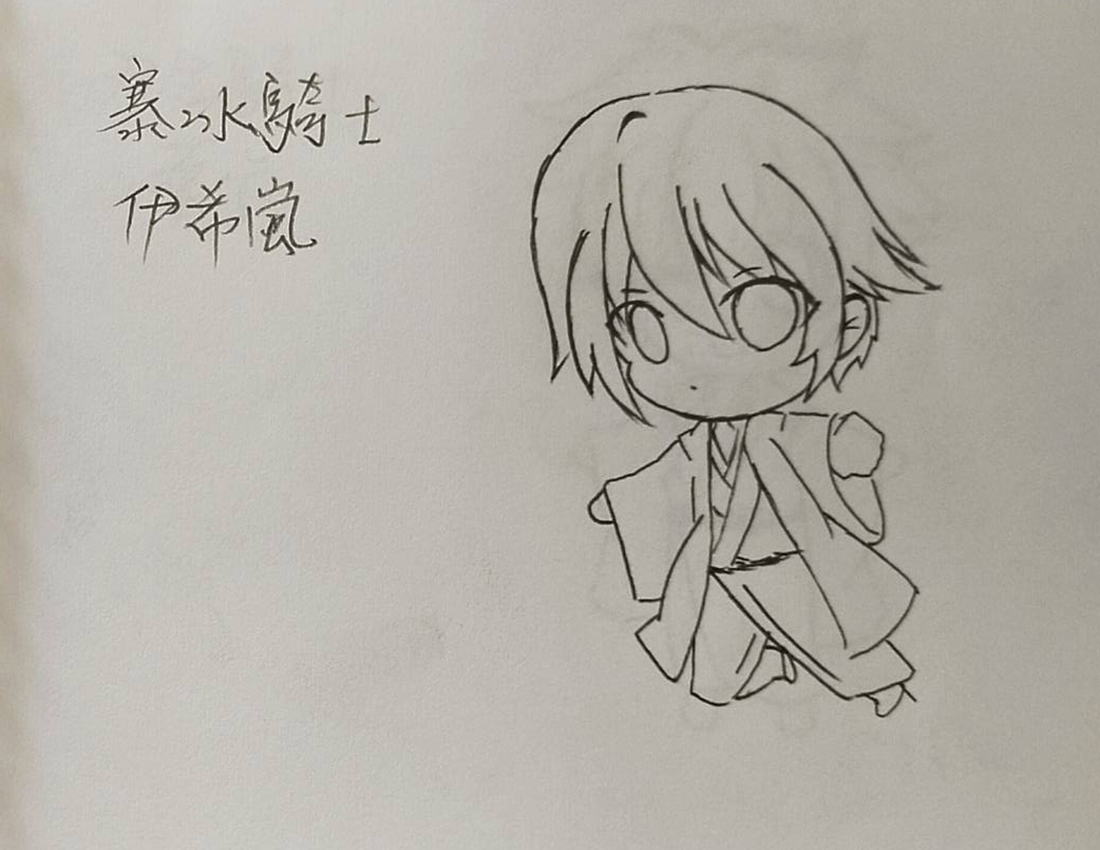 暴冰騎士
伊希嵐